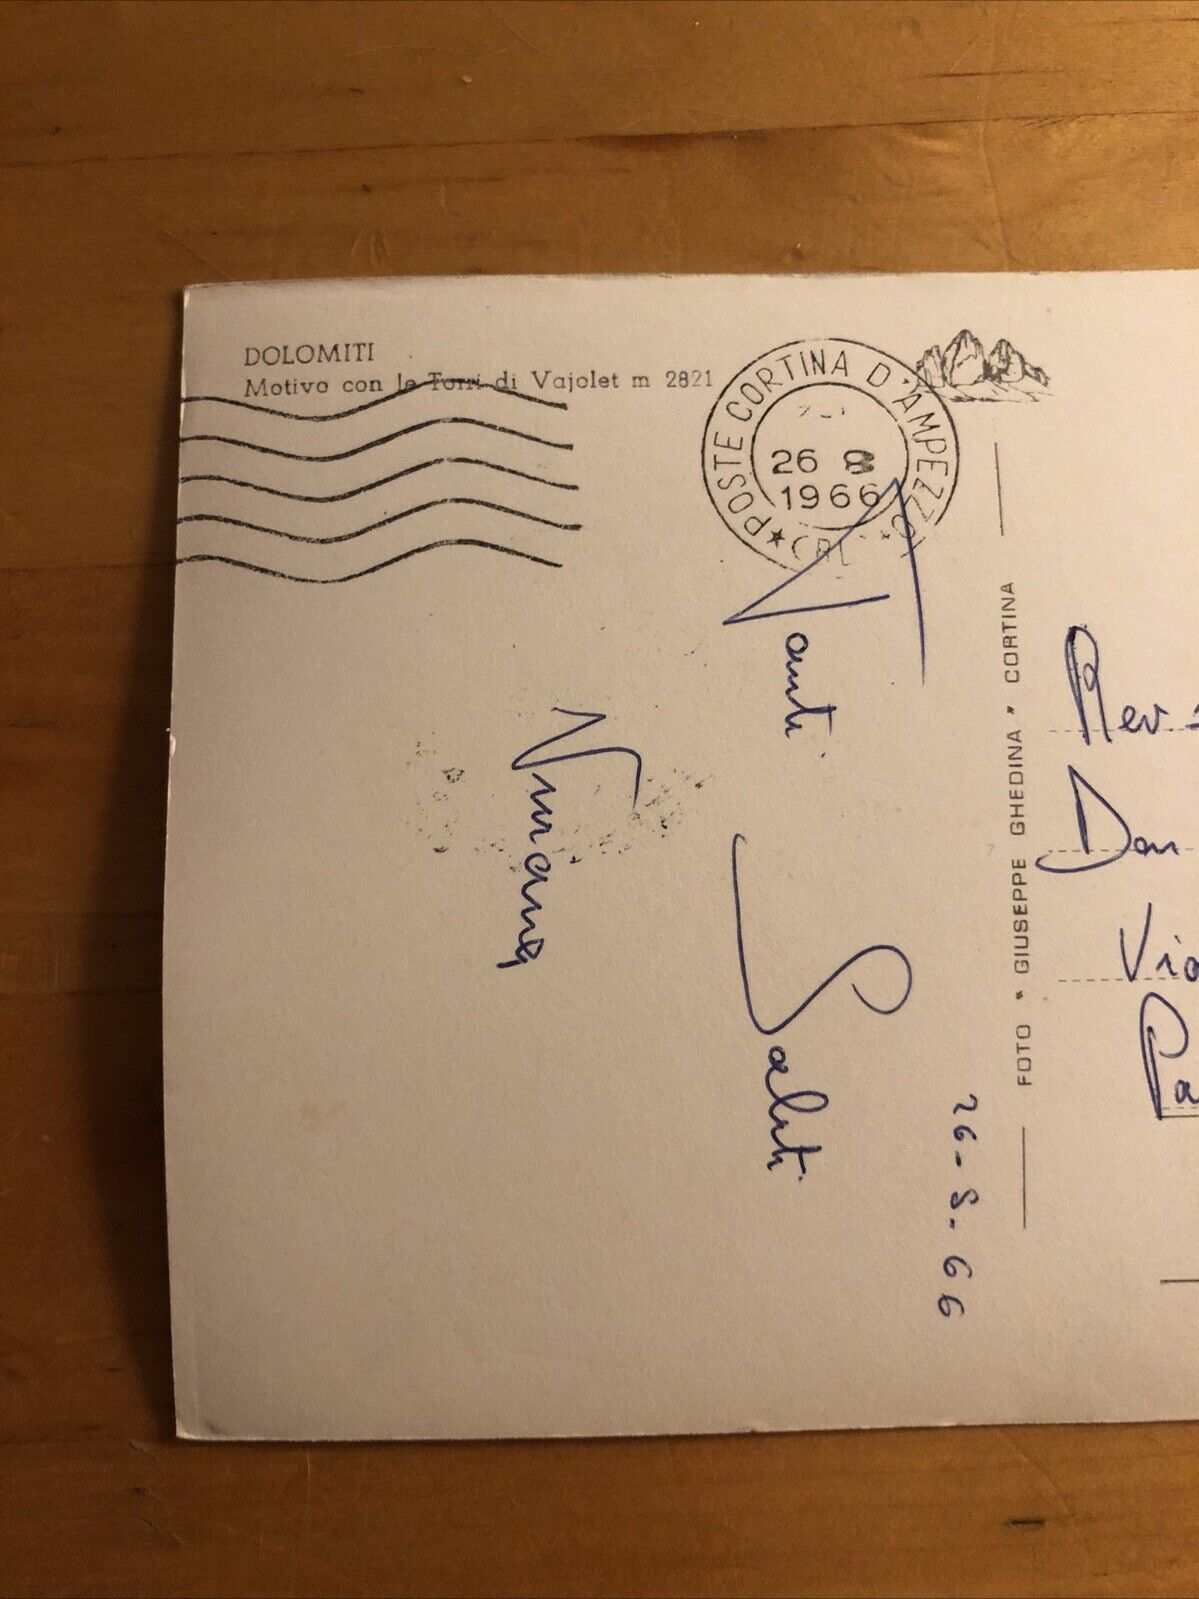 DOLOMITI
Motivo con le Torri di Vajolet m 2821
POSTE CORTINA D'AMPEZZO
26 8
1966
Tanti
Saluti
26-8-66
FOTO * GIUSEPPE GHEDINA * CORTINA
Rev
Don
Via
Pa